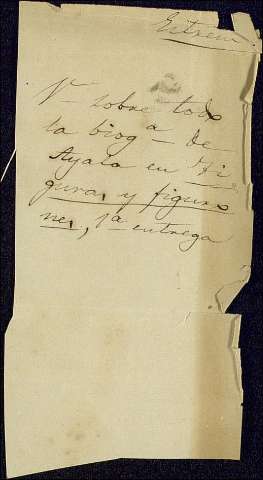 Extrem.
V. sobre todo
la biogª de
Ayala en Fi-
guras y figuro-
nes, 1ª entrega